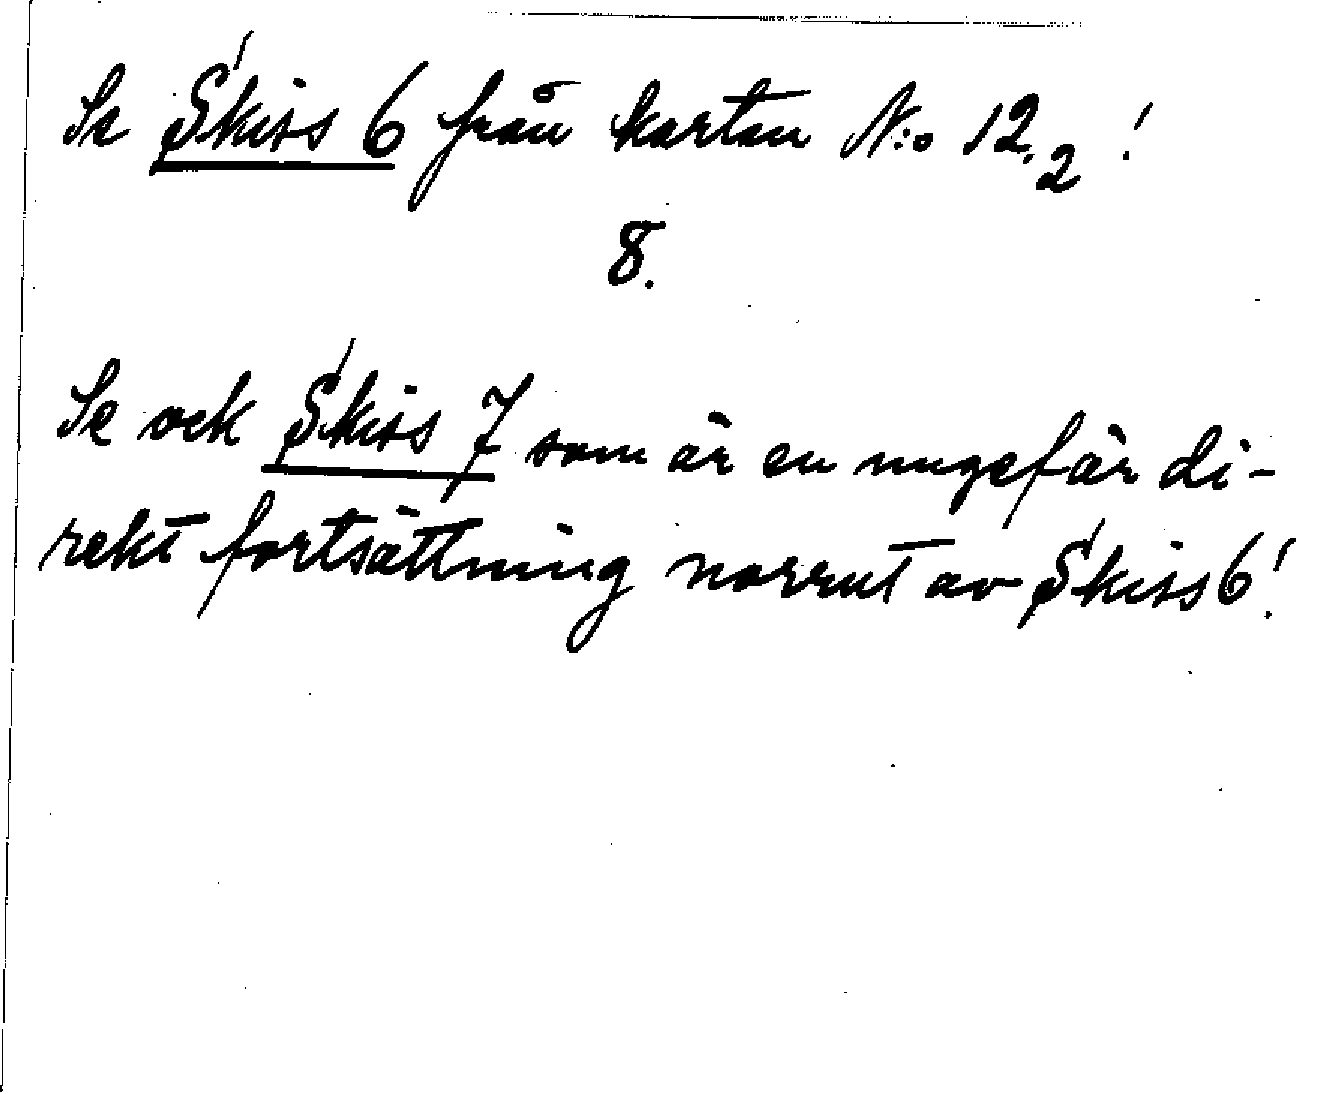 Se Skiss 6 från kartan N:o 12.2!
8.
Se ock Skiss 7 som är en ungefär di-
rekt fortsättning norrut av Skiss 6!